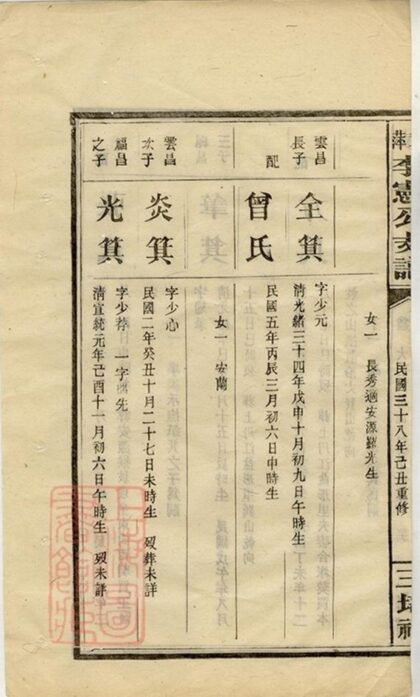 李憲公支譜
民國三十八年己丑重修
三槐
女一 長秀適安源羅光生
雲昌長子
全箕
字少元
清光緒三十四年戊申十月初九日午時生
配
曾氏
民國五年丙辰三月初六日申時生
女一 安蘭
雲昌次子
炎箕
字少心
民國二年癸丑十月二十七日未時生 歿葬未詳
福昌之子
光箕
字少
一字
先
清宣統元年己酉十一月初六日午時生 歿未詳